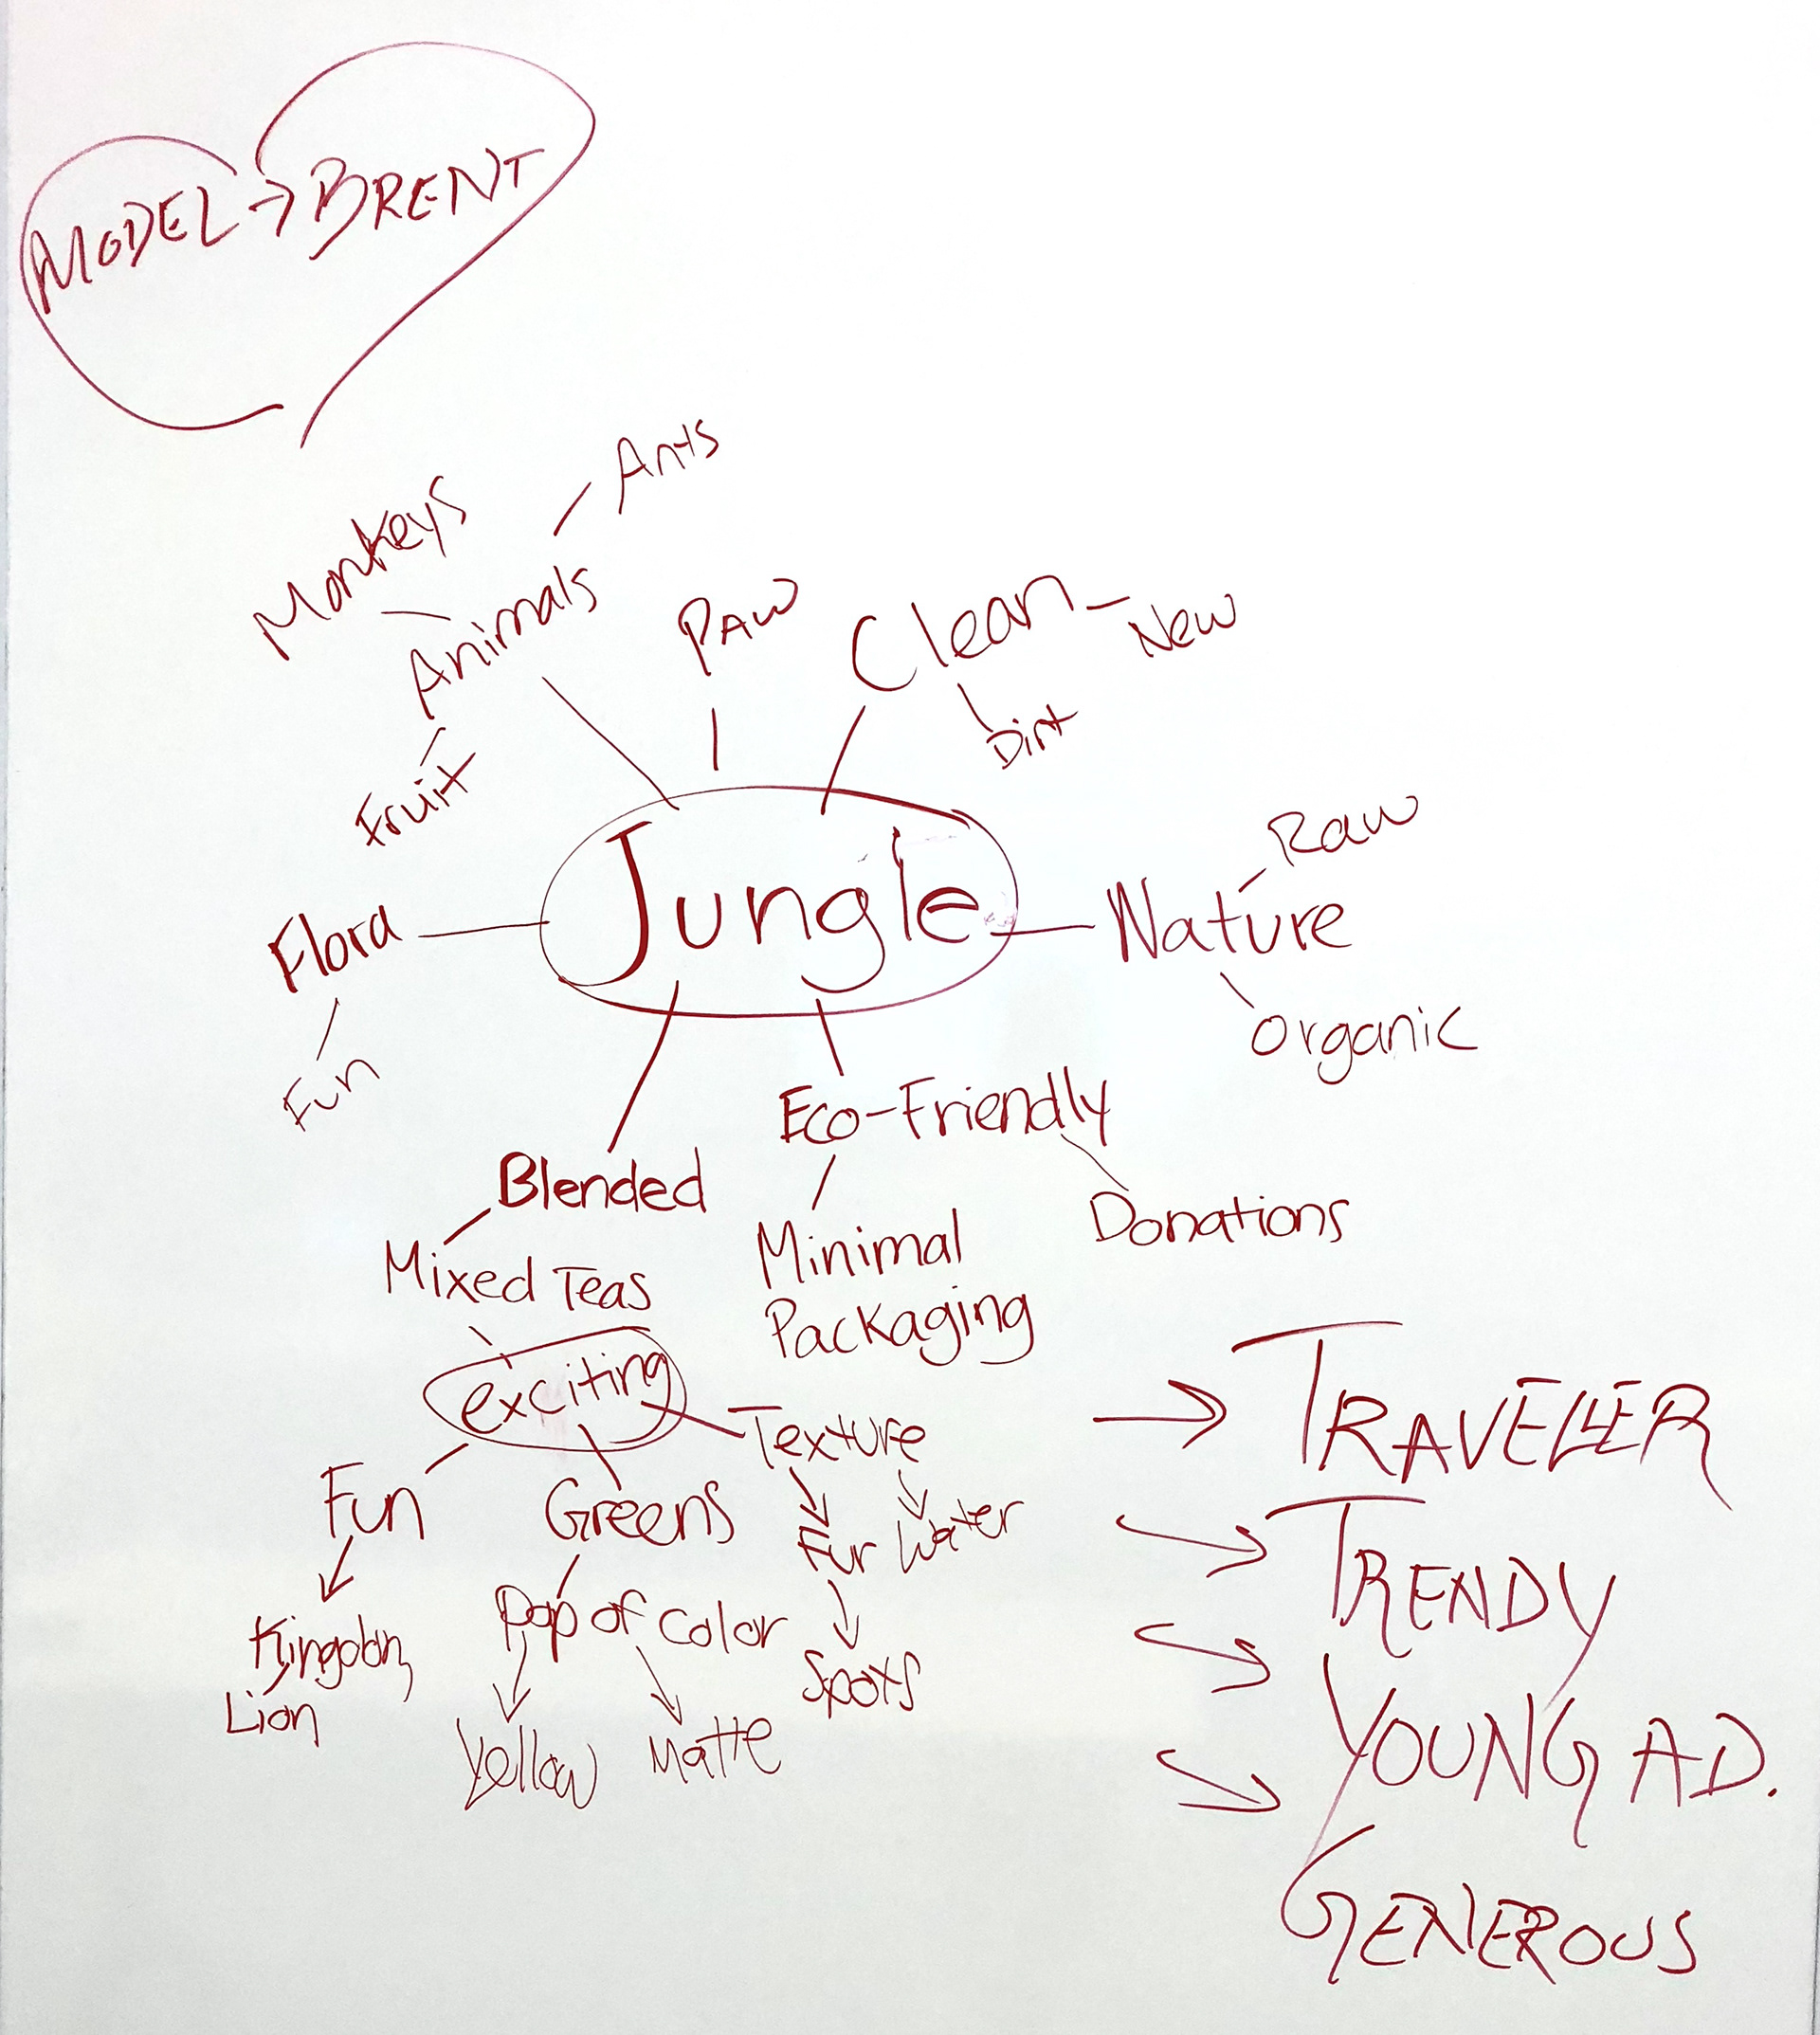 MODEL → BRENT
Ants
Monkeys
Animals
Paw
Clean
New
Dirt
Fruit
Raw
Jungle
Nature
Flora
Organic
Fun
Eco-Friendly
Blended
Donations
Minimal
Packaging
Mixed Teas
exciting
Texture
Fun
Greens
Fur
Water
Kingdom
Lion
Pop of color
Spots
Yellow
Matte
→ TRAVELLER
→ TRENDY
→ YOUNG AD.
→ GENEROUS